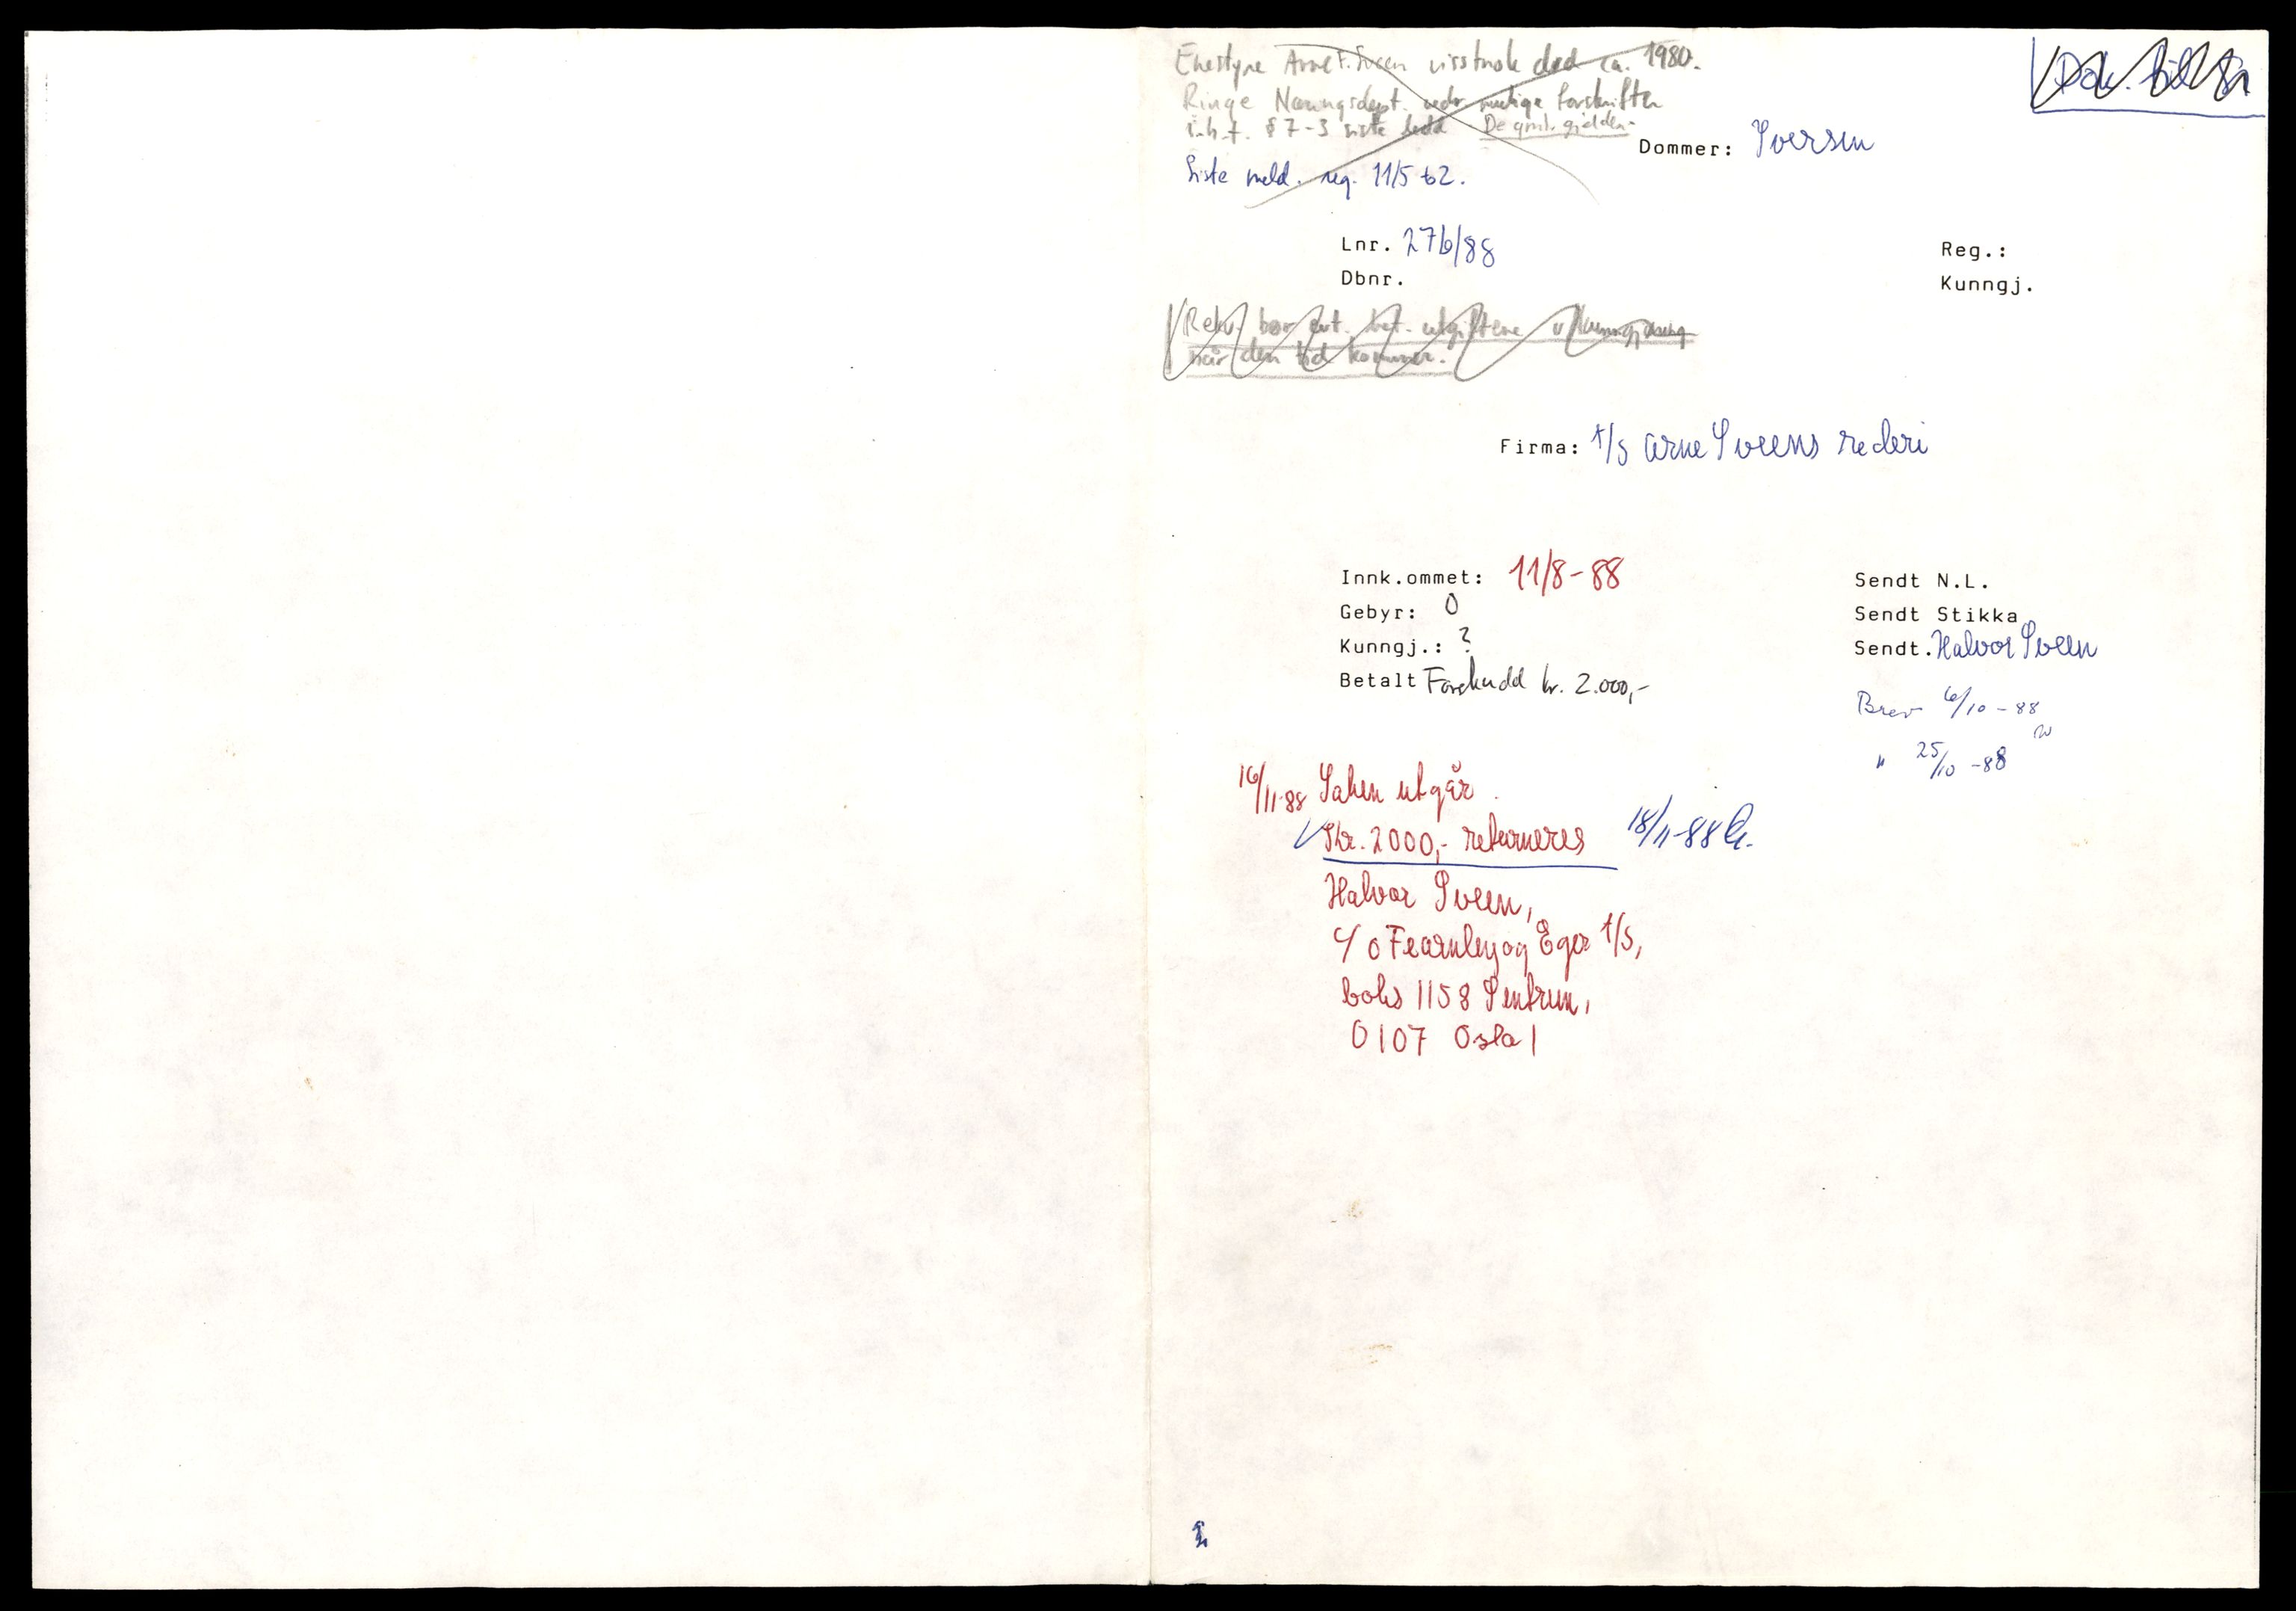 Enestyre Arne F. Sveen visstnok død ca. 1980.
Ringe Næringsdept. vedr. mulige forskrifter
i.h.t. § 7-3 siste ledd - De gml. gjelder-
Siste meld. reg. 11/5 62.
Dommer: Iversen
Lnr. 276/88
Dbnr.
Reg.:
Kunngj.
Rekv. bør evt. bet. utgiftene v/kunngjøring
når den tid kommer.
Firma: A/S Arne Sveens rederi
Innk.ommet: 11/8-88
Gebyr: 0
Kunngj.: ?
Betalt Forskudd kr. 2.000,-
Sendt N.L.
Sendt Stikka
Sendt. Halvor Sveen
Brev 6/10-88
" 25/10-88
16/11-88 Saken utgår.
Kr. 2000,- returneres 18/11-88
Halvor Sveen,
c/o Fearnley og Eger A/S,
boks 1158 Sentrum,
0107 Oslo 1